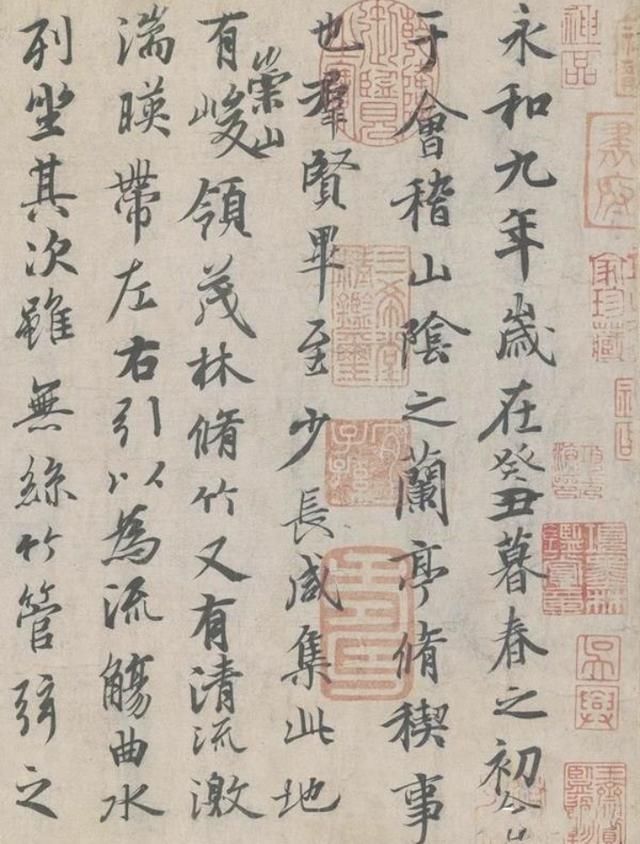 神品
永和九年歲在癸丑暮春之初會
于會稽山陰之蘭亭脩稧事
也羣賢畢至少長咸集此地
有崇山峻領茂林脩竹又有清流激
湍暎帶左右引以為流觴曲水
列坐其次雖無絲竹管弦之
三希堂
精鑑璽
宜
子孫